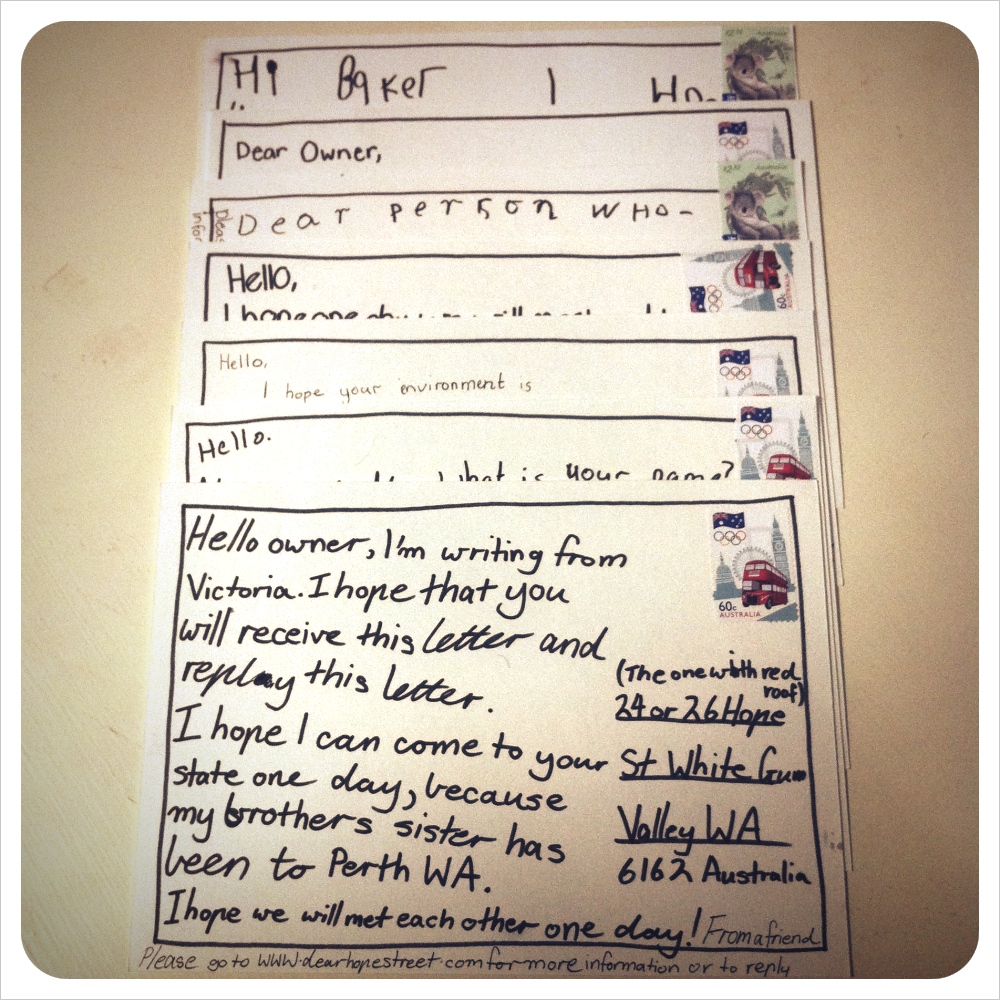 Hi Baker I Ho-
Dear Owner,
Dear person who-
Hello,
I hope one
Hello,
I hope your environment is
Hello.
What is your name?
Hello owner, I'm writing from
Victoria. I hope that you
will receive this letter and
replay this letter.
I hope I can come to your
state one day, because
my brothers sister has
been to Perth WA.
I hope we will met each other one day! From a friend
60c
AUSTRALIA
(The one with red
roof)
24 or 26 Hope
St White Gum
Valley WA
6162 Australia
Please go to www.dearhopestreet.com for more information or to reply